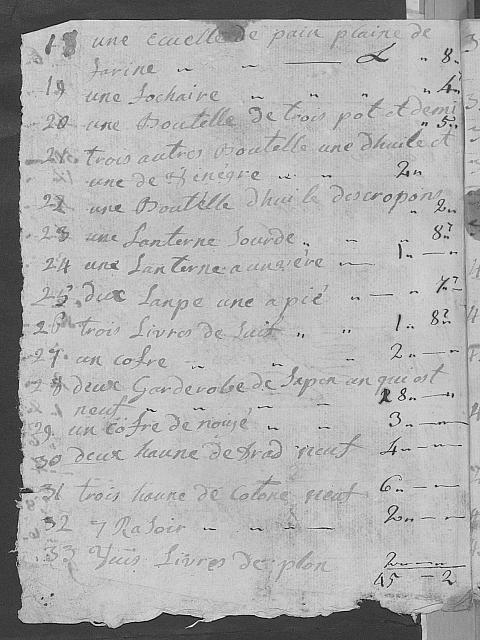 18 une Ecuelle de pain plaine de
farine " " — L " 8"
19 une Jochaire " " " " 4"
20 une Boutelle de trois pot et demi " 5"
21 trois autres Boutelle une dhuile et
une de vinegre " " 2"
22 une Boutelle dhuile descropons " 2"
23 une Lanterne Sourde " " " 8"
24 une Lanterne a un vére — 1" — "
25 deux Lanpe une a pié " — " 7"
26 trois Livres de Suif " " 1" 8"
27 un cofre " " " 2" — "
28 deux Garderobe de Sapin un qui est
neuf " " " " 28" — "
29 un cofre de nouié " " 3" — "
30 deux haune de drad neuf 4" — "
31 trois haune de Cotone neuf 6" — "
32 7 Rasoir " " " — 2" — "
33 Livres de plon 2" — "
45 — 2